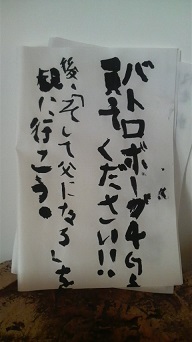 バトロボーグ
買ってください!!
後、「そして父になる」を
観に行こう。